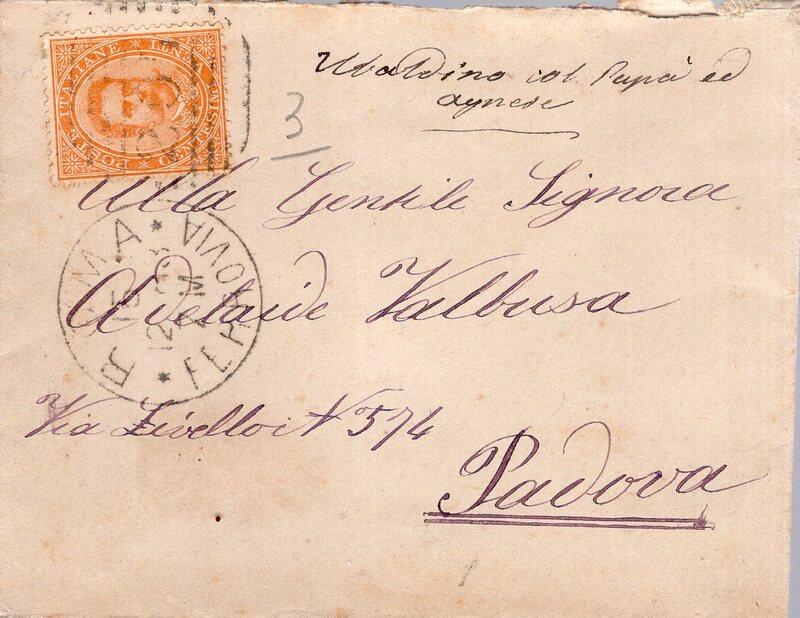 POSTE ITALIANE * VENTI CENTESIMI
Ubaldino col Papà ed
Agnese
3
Alla Gentile Signora
Adelaide Valbusa
ROMA * FERROVIA *
12 M
Via Livello N 574
Padova